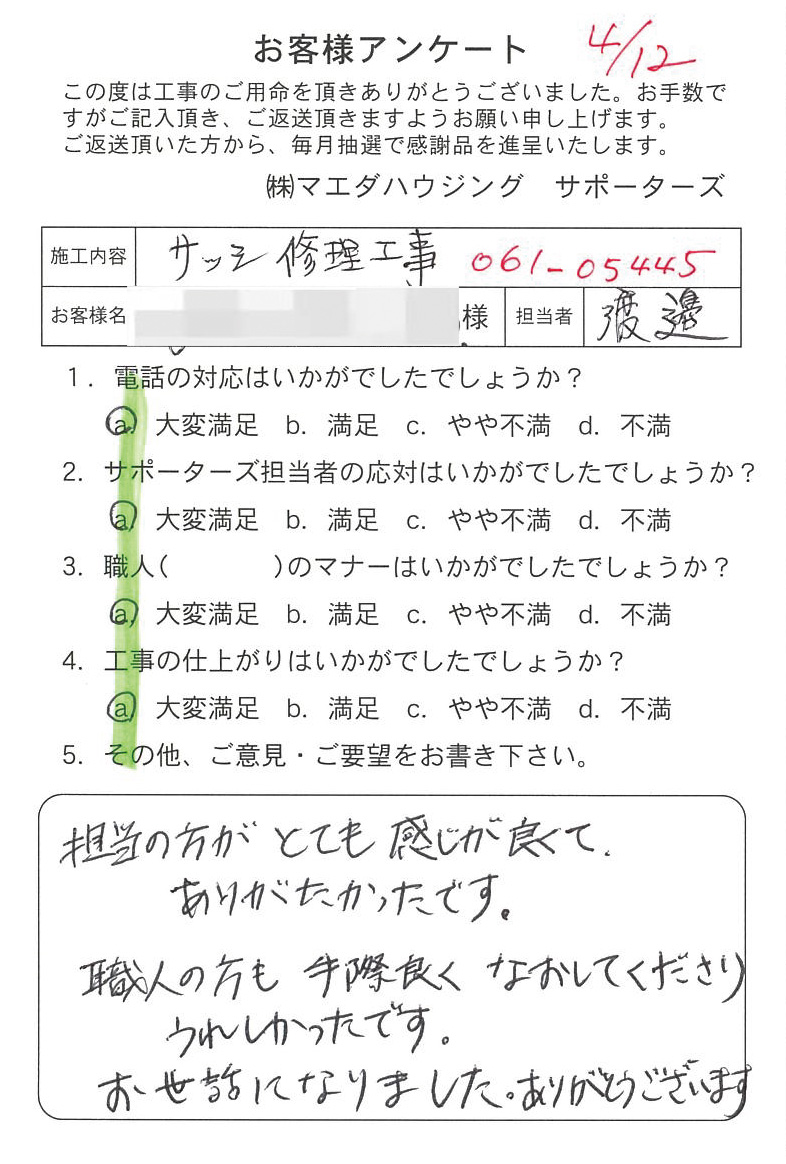 お客様アンケート
4/12
この度は工事のご用命を頂きありがとうございました。お手数で
すがご記入頂き、ご返送頂きますようお願い申し上げます。
ご返送頂いた方から、毎月抽選で感謝品を進呈いたします。
㈱マエダハウジング　サポーターズ
施工内容 サッシ修理工事 061-05445
お客様名 様 担当者 渡邊
1. 電話の対応はいかがでしたでしょうか？
a. 大変満足 b. 満足 c. やや不満 d. 不満
2. サポーターズ担当者の応対はいかがでしたでしょうか？
a. 大変満足 b. 満足 c. やや不満 d. 不満
3. 職人(　　　　)のマナーはいかがでしたでしょうか？
a. 大変満足 b. 満足 c. やや不満 d. 不満
4. 工事の仕上がりはいかがでしたでしょうか？
a. 大変満足 b. 満足 c. やや不満 d. 不満
5. その他、ご意見・ご要望をお書き下さい。
担当の方がとても感じが良くて、
ありがたかったです。
職人の方も手際良くなおしてくださり
うれしかったです。
お世話になりました。ありがとうございます